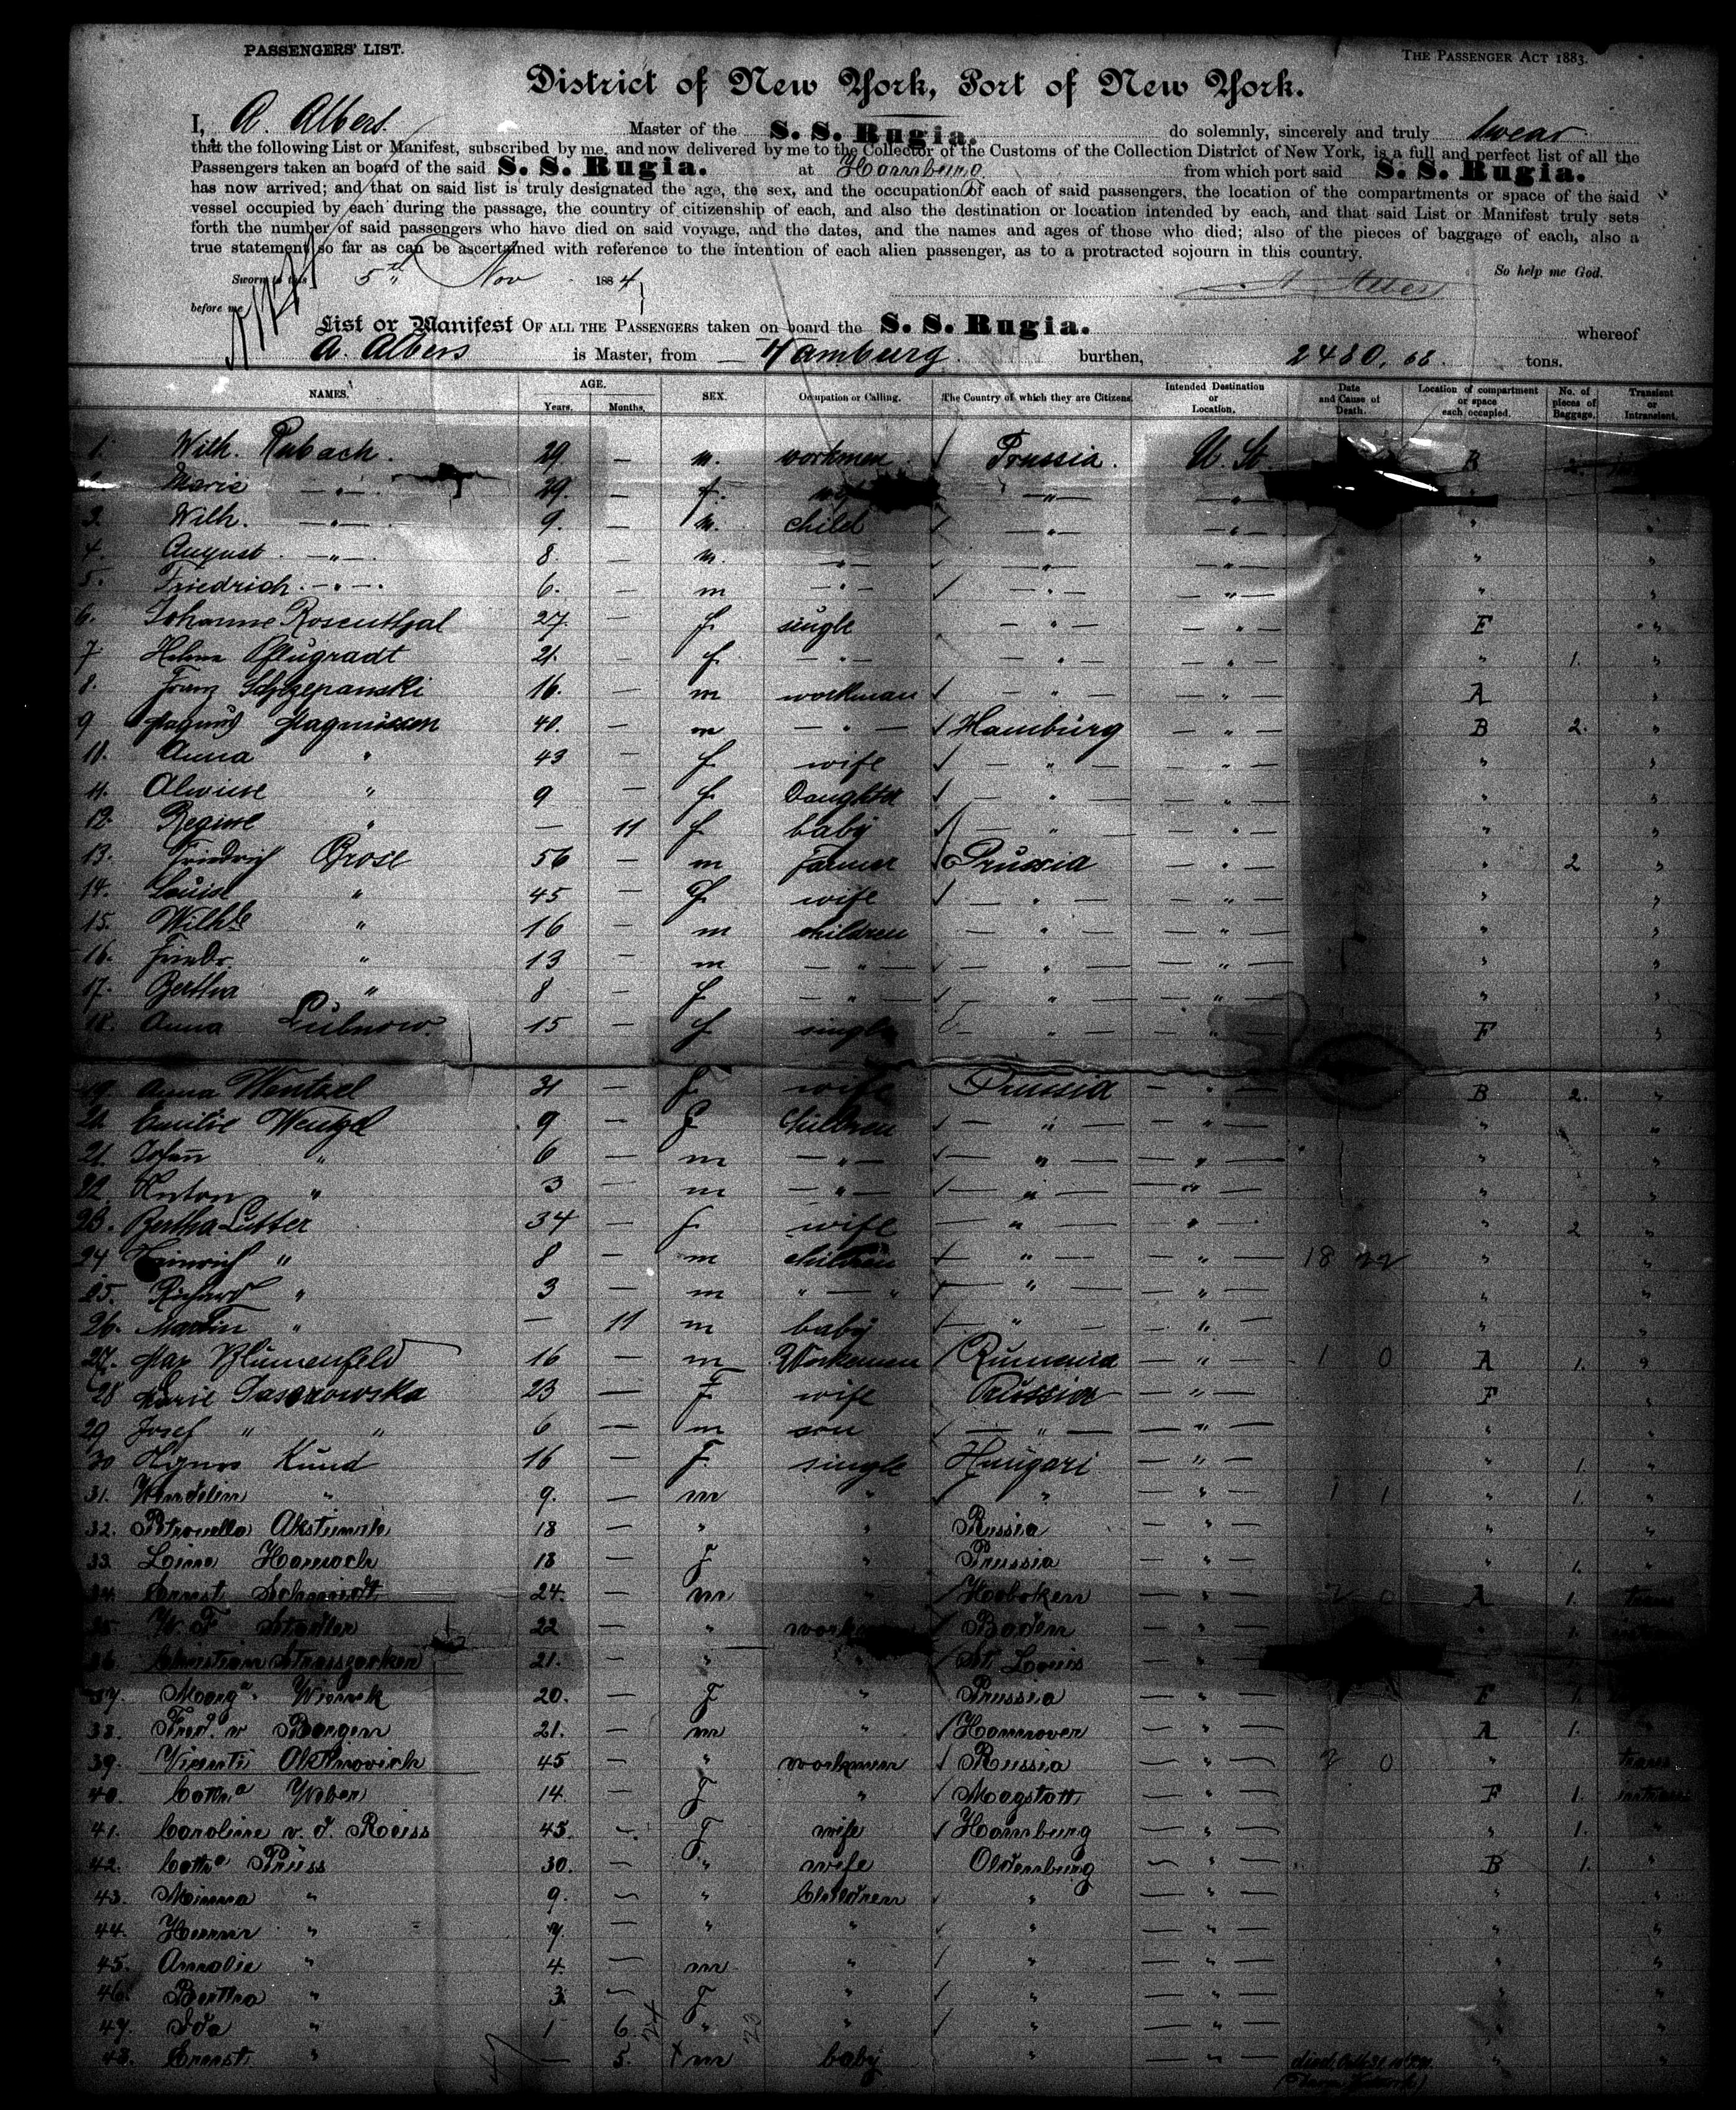 PASSENGERS' LIST.
THE PASSENGER ACT 1883.
District of New York, Port of New York.
I, A. Albers. Master of the S. S. Rugia. do solemnly, sincerely and truly swear
that the following List or Manifest, subscribed by me, and now delivered by me to the Collector of the Customs of the Collection District of New York, is a full and perfect list of all the
Passengers taken an board of the said S. S. Rugia. at Hamburg from which port said S. S. Rugia.
has now arrived; and that on said list is truly designated the age, the sex, and the occupation of each of said passengers, the location of the compartments or space of the said
vessel occupied by each during the passage, the country of citizenship of each, and also the destination or location intended by each, and that said List or Manifest truly sets
forth the number of said passengers who have died on said voyage, and the dates, and the names and ages of those who died; also of the pieces of baggage of each, also a
true statement so far as can be ascertained with reference to the intention of each alien passenger, as to a protracted sojourn in this country.
Sworn to this 5th Nov 1884 So help me God.
before me A. Albers
List or Manifest OF ALL THE PASSENGERS taken on board the S. S. Rugia. whereof
A. Albers is Master, from Hamburg burthen, 2480,68 tons.
NAMES. AGE. Years. Months. SEX. Occupation or Calling. The Country of which they are Citizens. Intended Destination or Location. Date and Cause of Death. Location of compartment or space each occupied. No. of pieces of Baggage. Transient or Intransient.
1. Wilh. Rubach. 29 — m. workmen Prussia. U. St. B 2
2. Marie —"— 29. — f. —"— —"—
3. Wilh. —"— 9. — m. child —"— —"— "
4. August —"— 8 — m. —"— —"— —"— " "
5. Friedrich —"— 6. — m —"— —"— —"— " "
6. Johanne Rosenthal 27. — f. single —"— —"— F "
7. Helene Pflugradt 21. — f —"— —"— —"— " 1. "
8. Franz Szczepanski 16. — m workman —"— —"— A "
9 Magnus Magnussen 40. — m —"— Hamburg —"— B 2. "
10. Anna " 43 — f. wife —"— —"— " "
11. Alwine " 9 — f. Daughter —"— —"— " "
12. Regine " — 11 f baby —"— —"— " "
13. Friedrich Grose 56 — m Farmer Prussia —"— " 2 "
14. Louise " 45 — f. wife —"— —"— " "
15. Wilh. " 16 — m children —"— —"— " "
16. Friedr. " 13 — m —"— —"— —"— " "
17. Bertha " 8 — f —"— —"— —"— " "
18. Anna Lübnow. 15 — f single —"— —"— F "
19. Anna Wentzel 31 — f. wife Prussia —"— B 2. "
20. Emilie Wentzel 9 — f Children —"— —"— " "
21. Johann " 6 — m —"— —"— —"— " "
22. Anton " 3 — m —"— —"— —"— " "
23. Bertha Lutter 34 — f. wife —"— —"— " 2 "
24 Heinrich " 8 — m children —"— —"— 18 22 " "
25. Richard " 3 — m "—" —"— —"— " "
26. Martin " — 11 m baby —"— —"— " "
27. Max Blumenfeld 16 — m Workemen Rumenia —"— 1 0 A 1. "
28 Marie 23 — F wife Prussia —"— F "
29 Josef " " 6 — m son —"— —"— " "
30 Agnes Kund 16 — F. single Hungari —"— " 1. "
31. Wendelin " 9. — m " " —"— 1 1 " 1. "
32. Petronella 18 — " " Russia —"— " "
33. Lina 18 — F " Prussia —"— " 1. "
34. Ernst Schmidt 24. — m " Hoboken —"— 2 0 A 1. trans
35. W. F. Stadler 22 — " Baden —"— " 1.
36. Christian 21. — " " St. Louis —"—
37. Marg. 20. — F " Prussia —"— F 1.
38. Fred. v Bargen 21. — m " Hannover —"— A 1. "
39. 45 — " workmen Russia —"— 2 0 " trans
40. Cath.a Weber 14. — F " Magstatt —"— F 1.
41. Caroline v. d. Reiss 45. — F wife Hamburg —"— " 1. "
42. Cath.a Prüss 30. — " wife Oldenburg —"— B 1. "
43. Minna " 9. — " Children " —"— " "
44. " 7. — " " " —"— " "
45. Amalie " 4. — m " " —"— " "
46. Bertha " 3. — F " " —"— " "
47. Ida " 1 6. " " " —"— " "
48. Ernst. " — 5. m baby " —"— died "